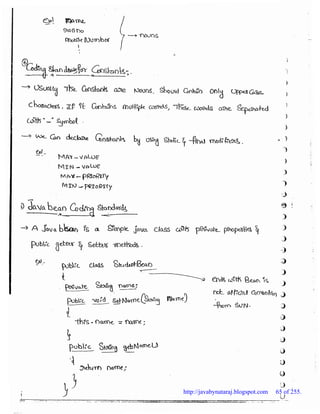 Ex:- name
rollNo
mobileNumber → nouns
⑧ Coding Standards for Constants:-
→ Usually the Constants are Nouns, Should Contain only UpperCase
characters. If it Contains multiple words, these words are Seperated
with "_" symbol.
→ we Can declare Constants by using Static & final modifiers.
Ex:- MAX_VALUE
MIN_VALUE
MAX_PRIORITY
MIN_PRIORITY
Java bean Coding Standards
→ A Java bean is a Simple java class with private properties &
public getter & Setter methods.
Ex:- public class StudentBean
{
private String name;
public void setName(String name)
{
this.name = name;
}
public String getName()
{
return name;
}
}
→ Ends with Bean is
not official Convention
from SUN.
http://javabynataraj.blogspot.com 65 of 255.